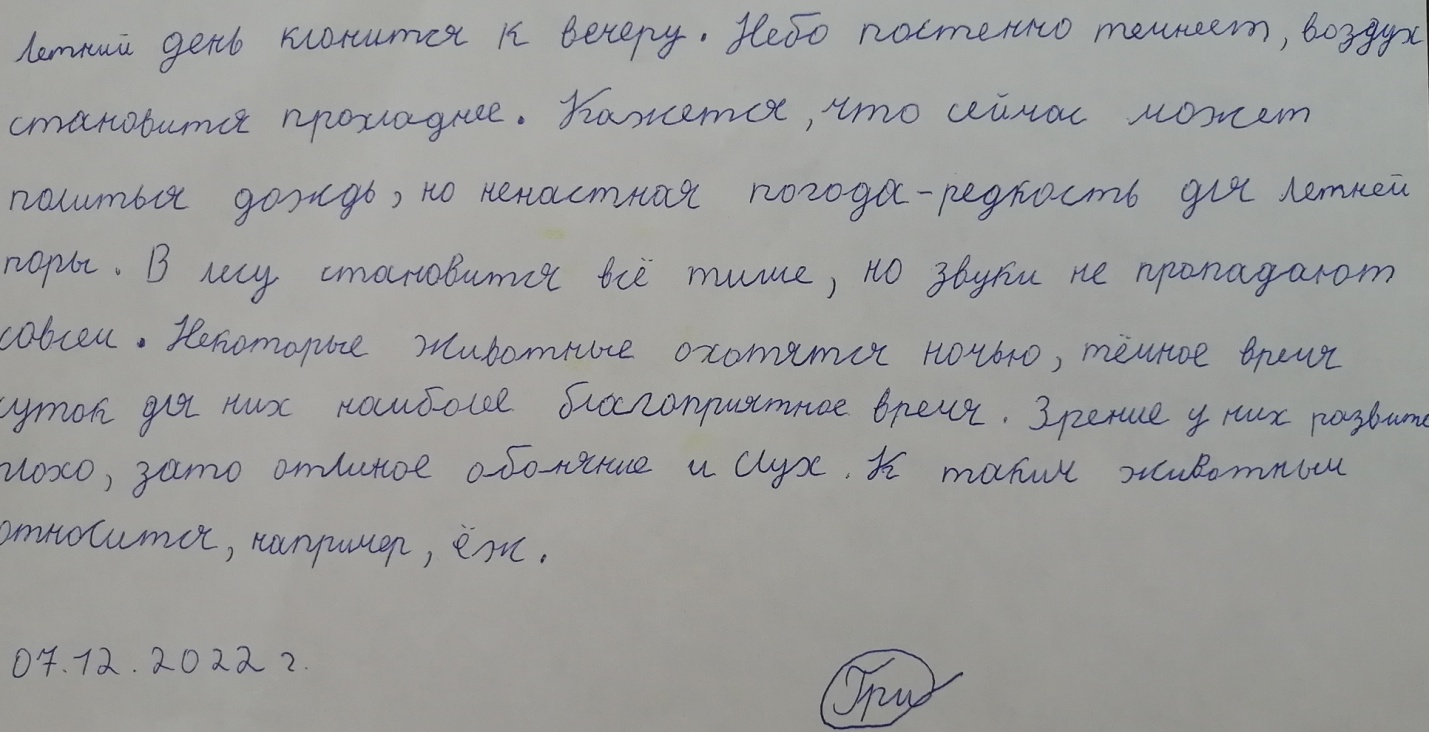 Летний день клонится к вечеру. Небо постенно темнеет, воздух
становится прохладнее. Кажется, что сейчас может
политься дождь, но ненастная погода-редкость для летней
поры. В лесу становится всё тише, но звуки не пропадают
совсем. Некоторые животные охотятся ночью, тёмное время
суток для них наиболее благоприятное время. Зрение у них развито
плохо, зато отлиное обоняние и слух. К таким животным
относится, например, ёж.
07.12.2022 г.
Гри